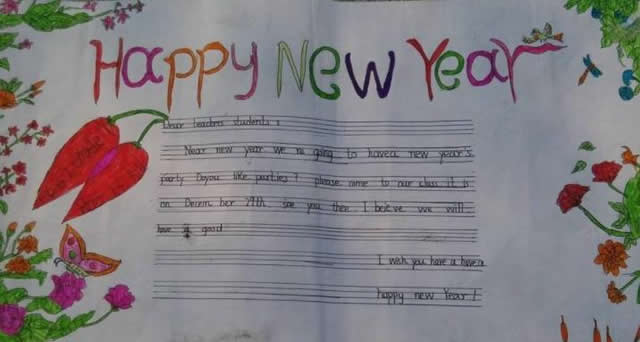 Happy New Year
Dear teachers students :
Near new year we re going to havea new year's
party Doyou like parties ? please come to our class it is
on Decem ber 29th see you thee. I beieve we will
have a good
I wish you have a
happy new Year !